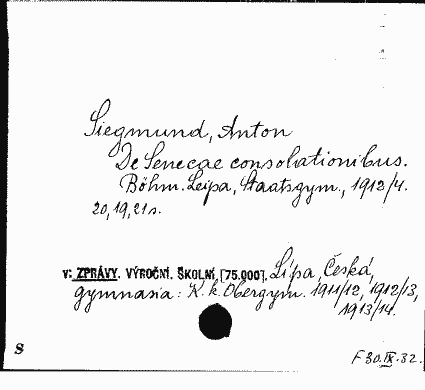 Siegmund, Anton
De Senecae consolationibus.
Böhm. Leipa, Staatsgym., 1912/4.
20, 19, 21 s.
v: ZPRÁVY. VÝROČNÍ. ŠKOLNÍ, [75.000], Lípa, Česká,
gymnasia: K. k. Obergym. 1911/12, 1912/13,
1913/14.
S
F 30.IX.32.